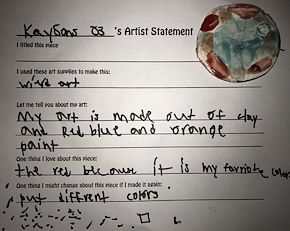 Kaysons 's Artist Statement
I titled this piece
I used these art supplies to make this:
wire art
Let me tell you about my art:
my art is made out of clay
and Red blue and orange
paint
One thing I love about this piece:
the red because it is my favorite color
One thing I might change about this piece if I made it again:
put diffrent colors